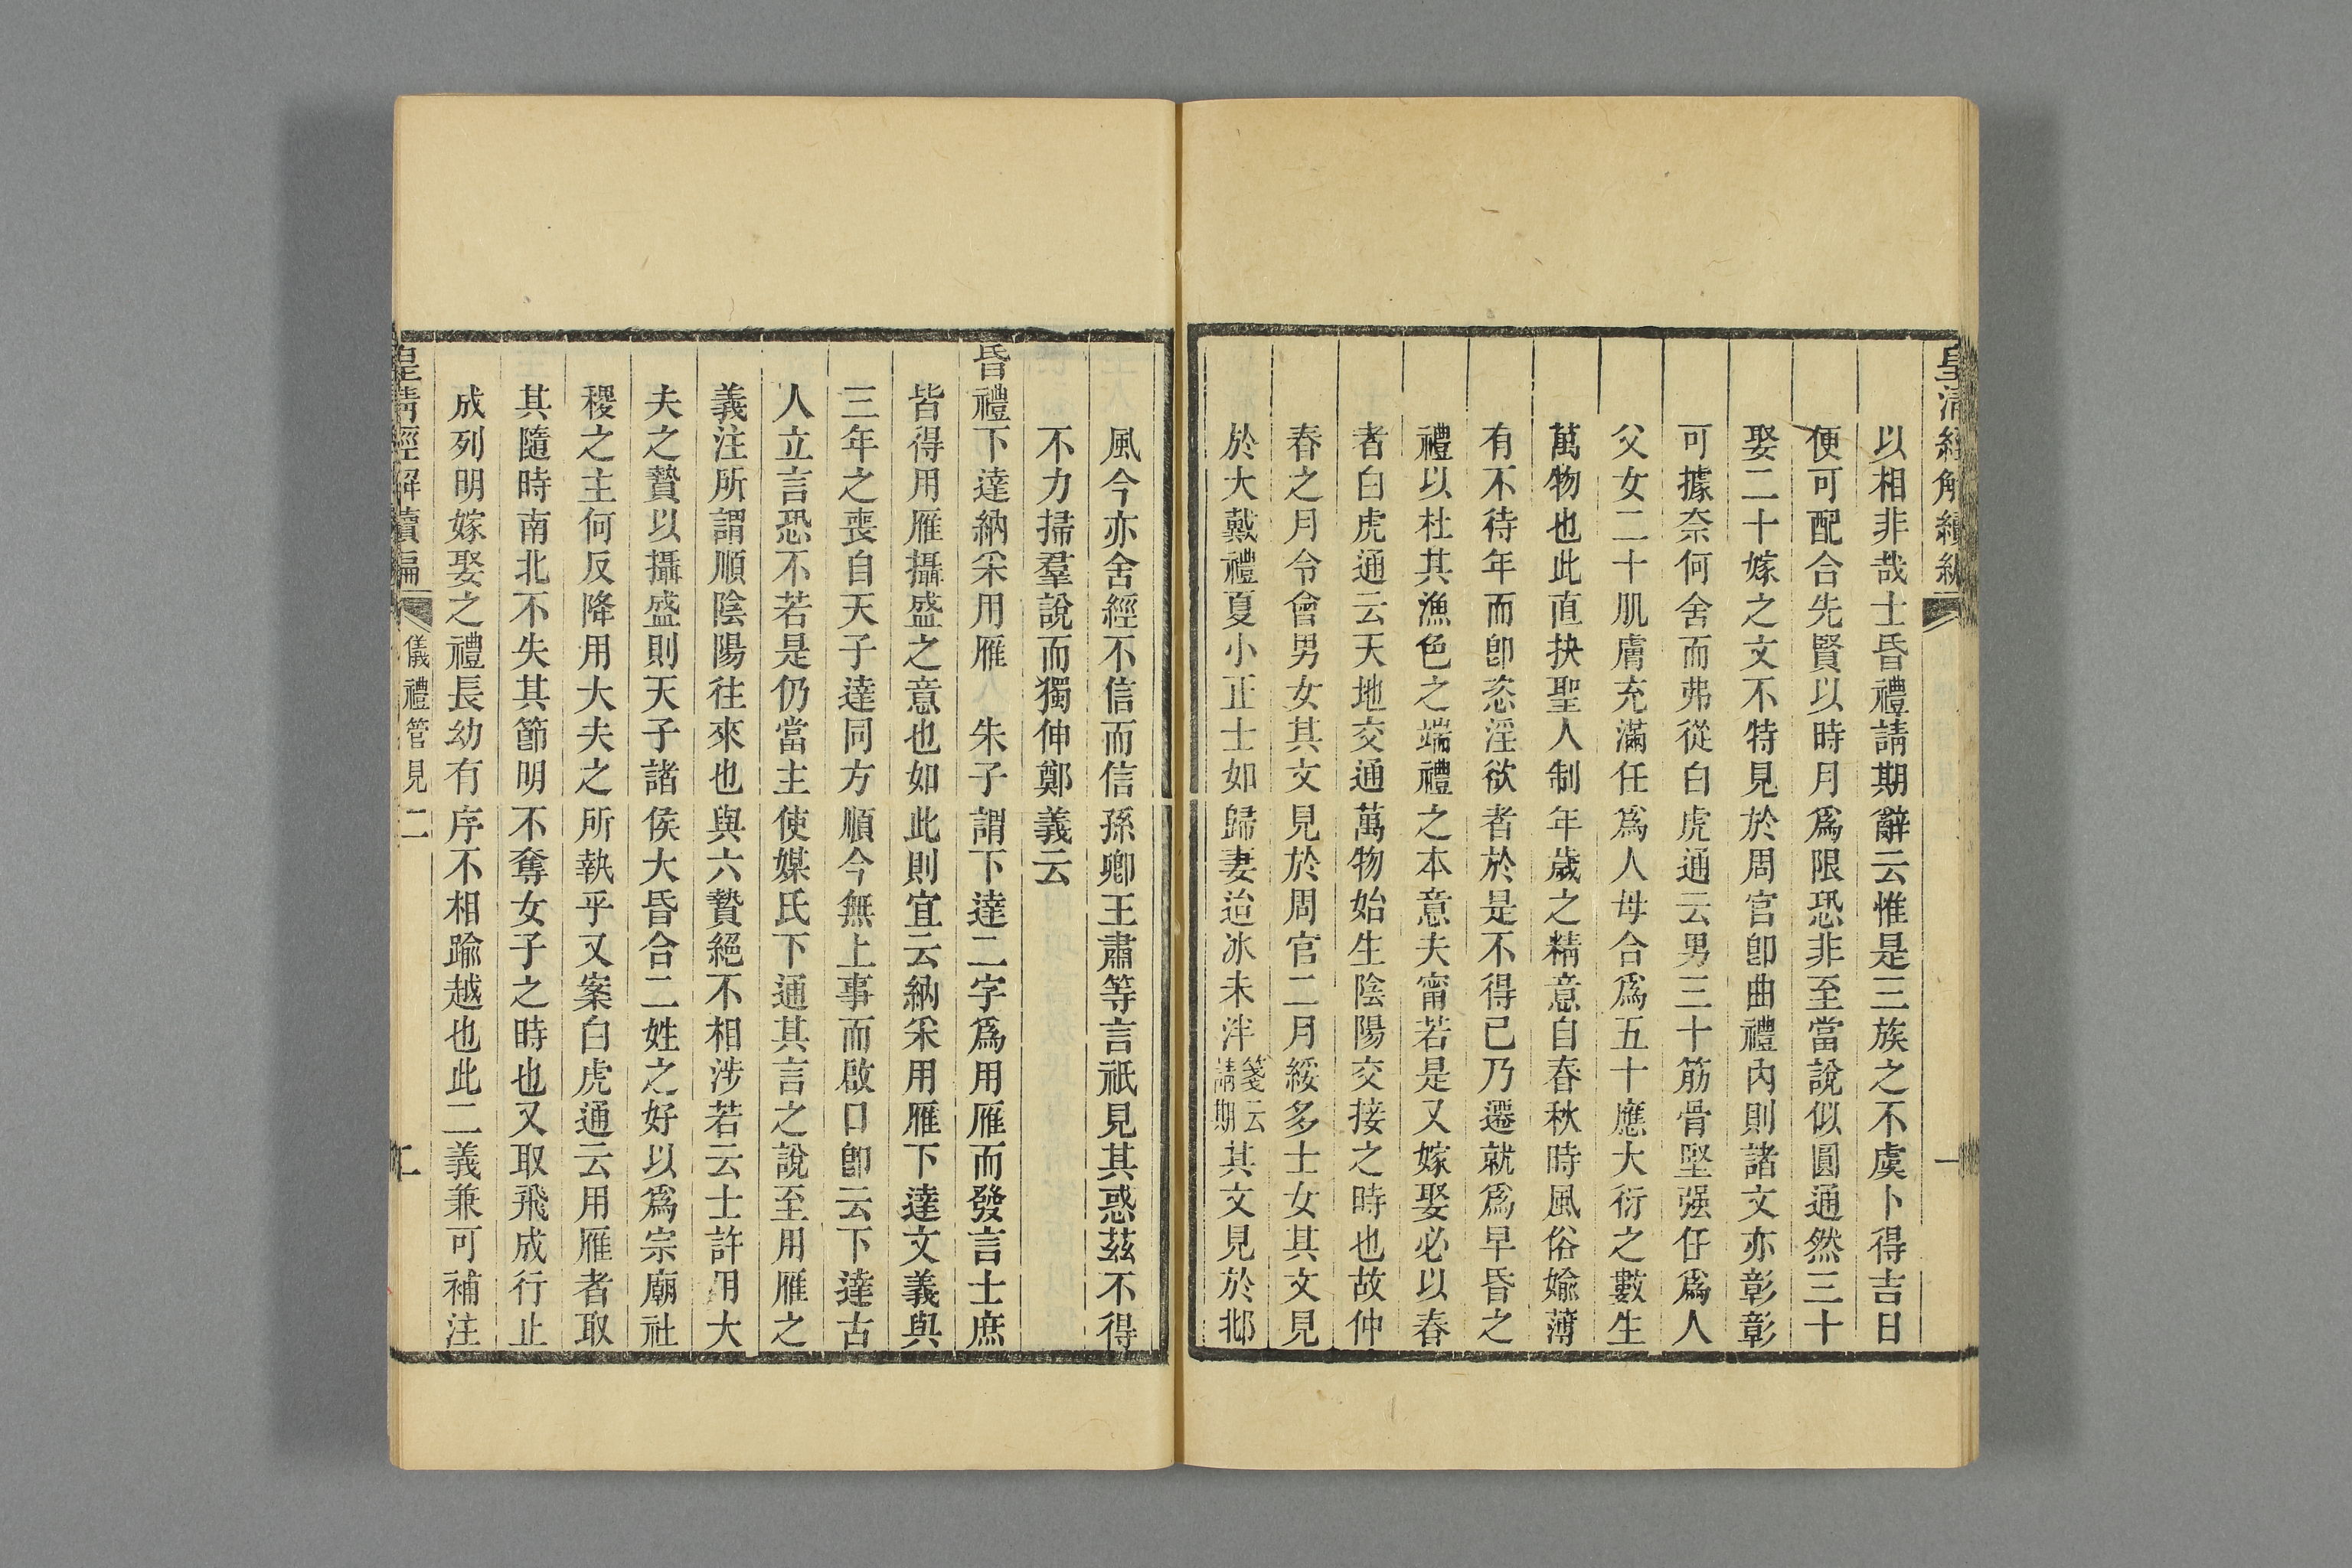 皇清經解續編
一
以相非哉士昏禮請期辭云惟是三族之不虞卜得吉日
便可配合先賢以時月爲限恐非至當說似圓通然三十
娶二十嫁之文不特見於周官卽曲禮內則諸文亦彰彰
可據奈何舍而弗從白虎通云男三十筋骨堅强任爲人
父女二十肌膚充滿任爲人母合爲五十應大衍之數生
萬物也此直抉聖人制年歲之精意自春秋時風俗媮薄
有不待年而卽恣淫欲者於是不得已乃遷就爲早昏之
禮以杜其漁色之端禮之本意夫甯若是又嫁娶必以春
者白虎通云天地交通萬物始生陰陽交接之時也故仲
春之月令會男女其文見於周官二月綏多士女其文見
於大戴禮夏小正士如歸妻迨冰未泮箋云請期其文見於邶
風今亦舍經不信而信孫卿王肅等言祇見其惑茲不得
不力掃羣說而獨伸鄭義云
昏禮下達納采用雁 朱子謂下達二字爲用雁而發言士庶
皆得用雁攝盛之意也如此則宜云納采用雁下達文義與
三年之喪自天子達同方順今無上事而啟口卽云下達古
人立言恐不若是仍當主使媒氏下通其言之說至用雁之
義注所謂順陰陽往來也與六贄絕不相涉若云士許用大
夫之贄以攝盛則天子諸侯大昏合二姓之好以爲宗廟社
稷之主何反降用大夫之所執乎又案白虎通云用雁者取
其隨時南北不失其節明不奪女子之時也又取飛成行止
成列明嫁娶之禮長幼有序不相踰越也此二義兼可補注
皇清經解續編
儀禮管見二
二